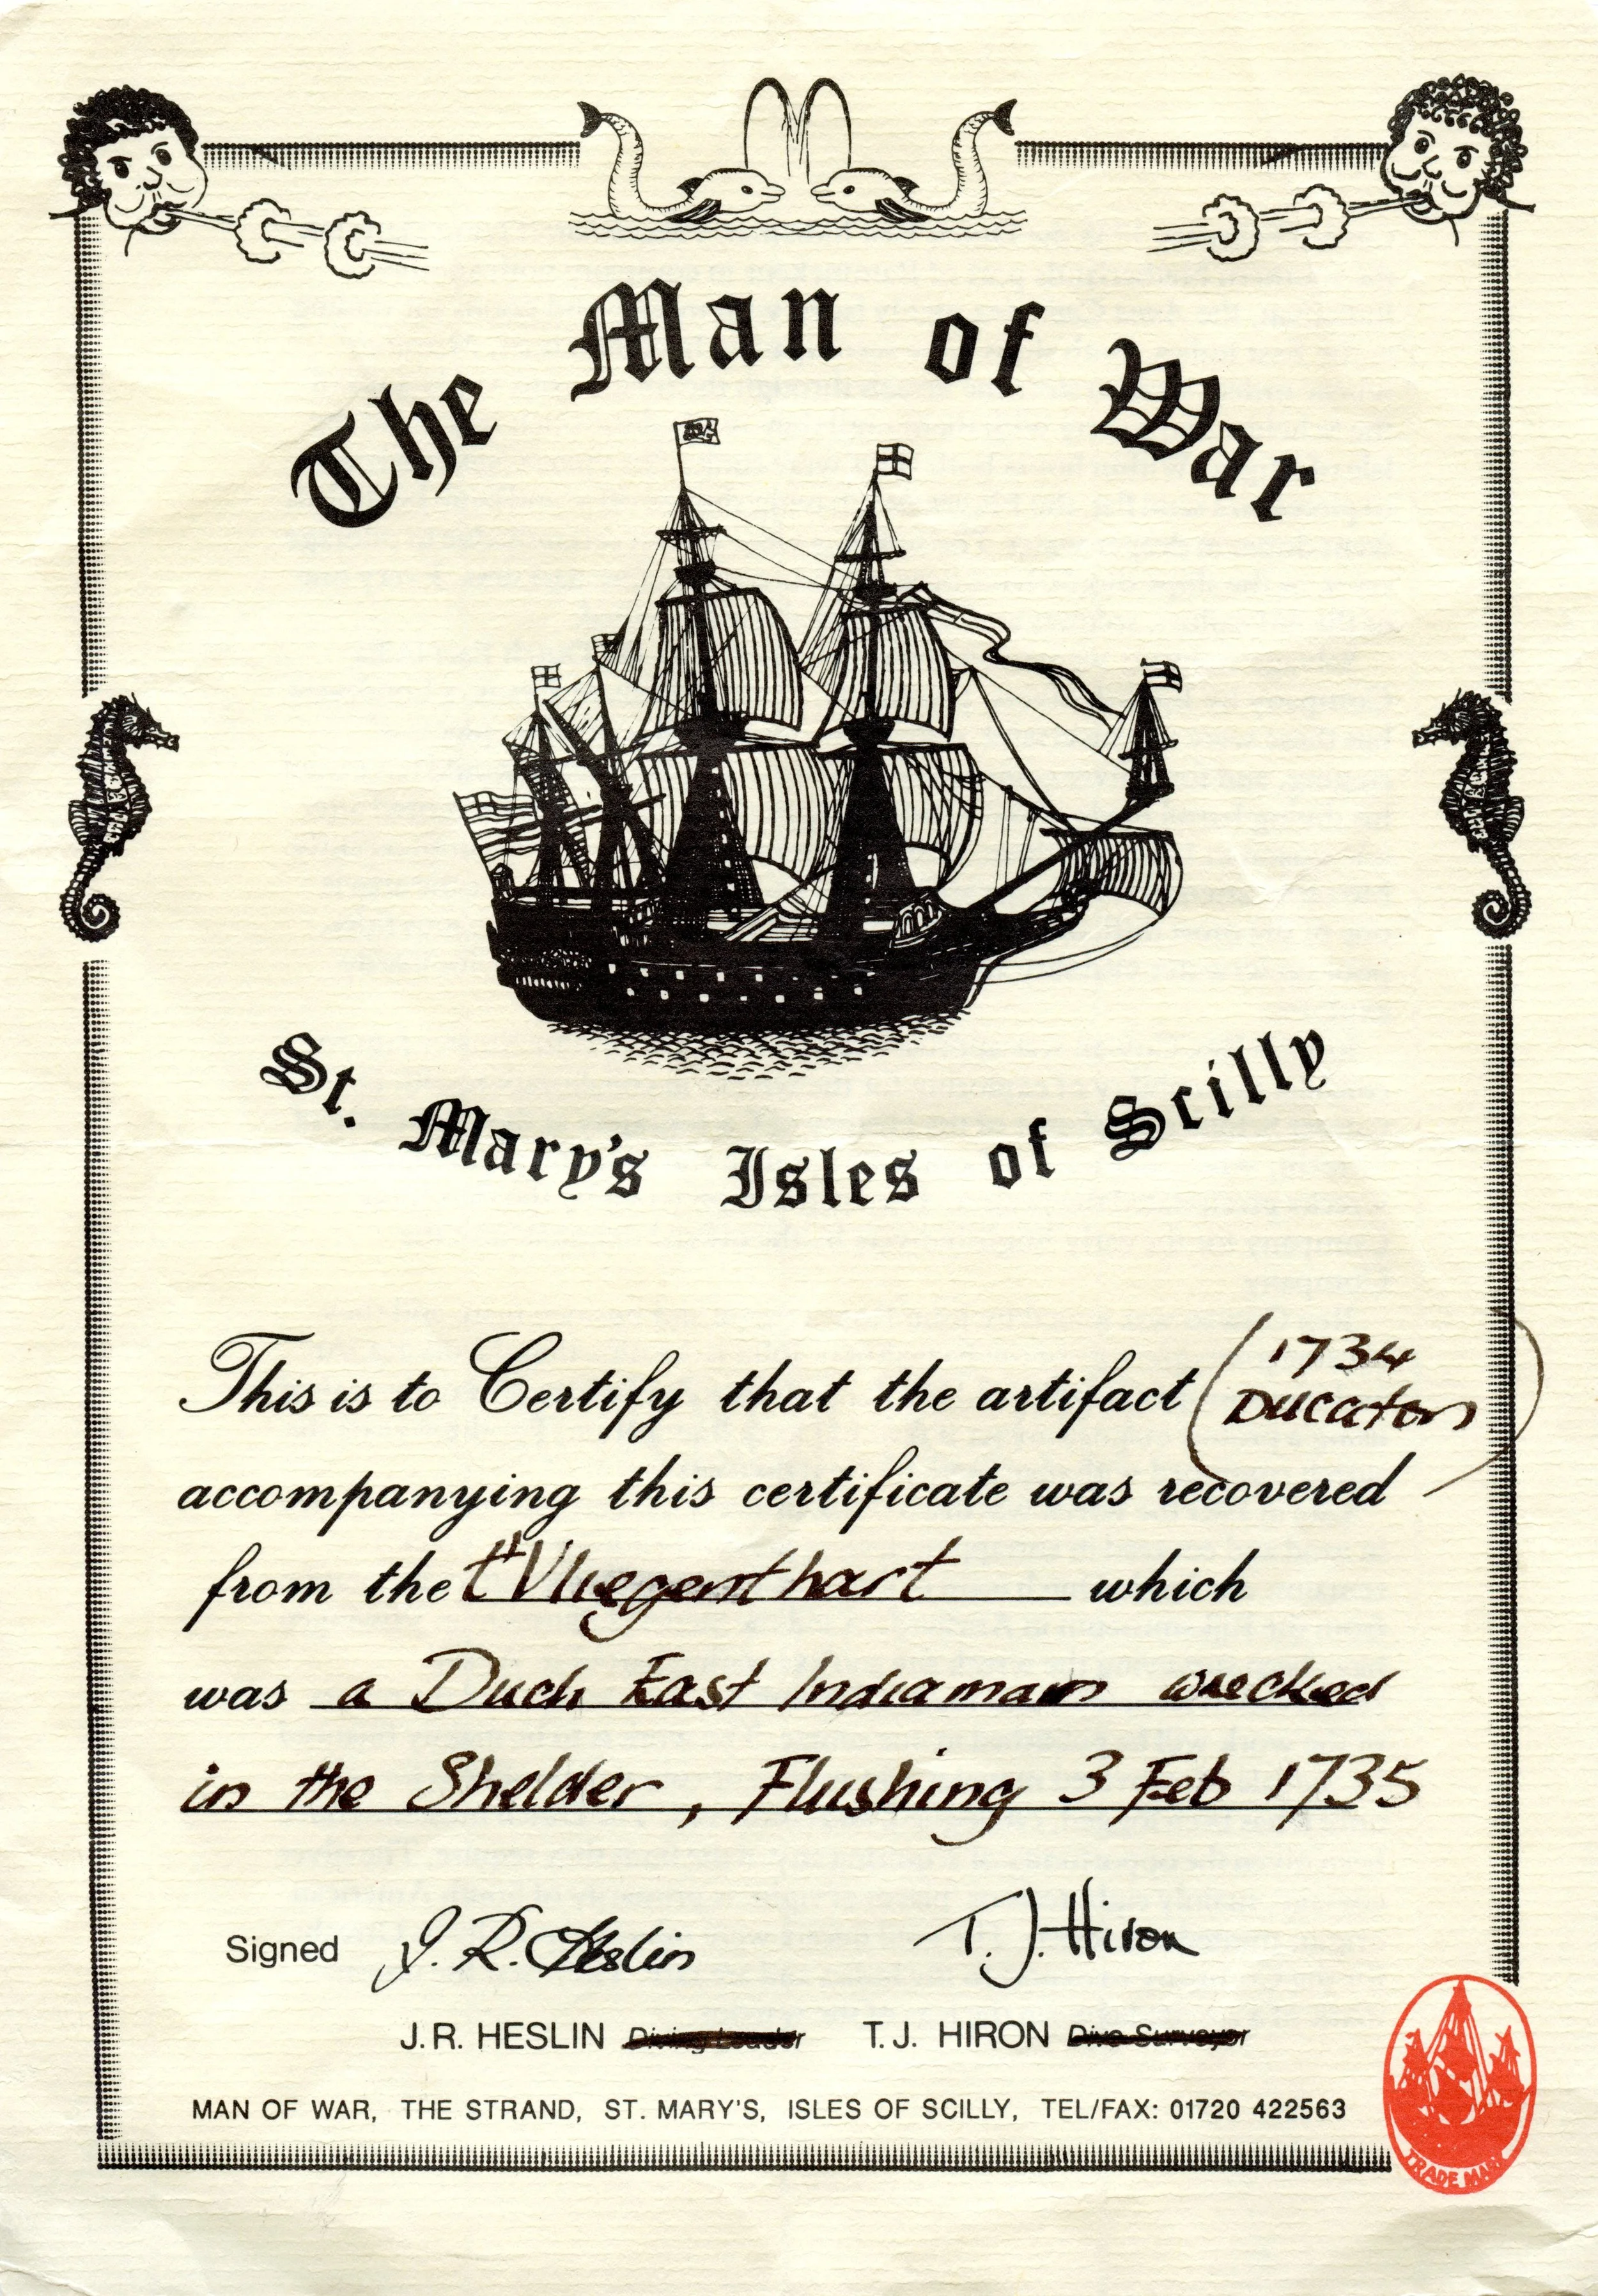 The Man of War
St. Mary's Isles of Scilly
This is to Certify that the artifact (1734
Ducaton)
accompanying this certificate was recovered
from the t'Vliegenthart which
was a Duch East Indiaman wrecked
in the Shelder, Flushing 3 Feb 1735
Signed J. R. Heslin T. J. Hiron
J.R. HESLIN Diving Leader T.J. HIRON Dive Surveyor
MAN OF WAR, THE STRAND, ST. MARY'S, ISLES OF SCILLY, TEL/FAX: 01720 422563
TRADE MARK